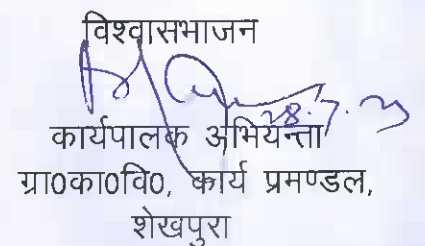 विश्वासभाजन
28.7.23
कार्यपालक अभियन्ता
ग्रा0का0वि0, कार्य प्रमण्डल,
शेखपुरा